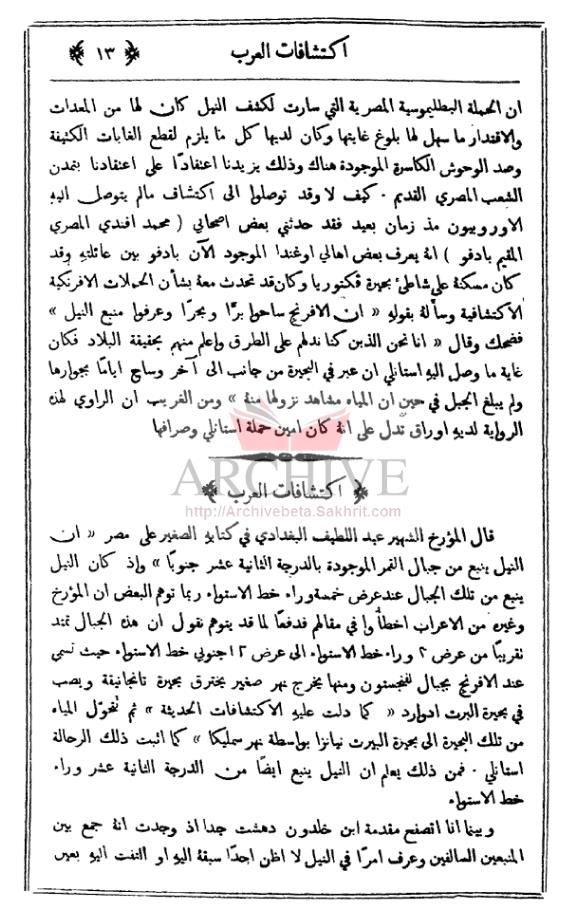 ﴿ ١٣ ﴾ اكتشافات العرب
ان الحملة البطليموسية المصرية التي سارت لكشف النيل كان لها من المعدات
والاقتدار ما سهل لها بلوغ غايتها وكان لديها كل ما يلزم لقطع الغابات الكثيفة
وصد الوحوش الكاسرة الموجودة هناك وذلك يزيدنا اعتقادًا على اعتقادنا بتمدن
الشعب المصري القديم ٠ كيف لا وقد توصلوا الى اكتشاف مالم يتوصل اليه
الاوروبيون مذ زمان بعيد فقد حدثني بعض اصحابي ( محمد افندي المصري
المقيم بادفو ) انهُ يعرف بعض اهالي اوغندا الموجود الآن بادفو بين عائلتهِ وقد
كان مسكنهُ على شاطئ بحيرة فكتوريا وكان قد تحدث معهُ بشأن الحملات الافرنكية
الاكتشافية وسأله بقولهِ « ان الافرنج ساحوا برًا وبحرًا وعرفوا منبع النيل »
فضحك وقال « انا نحن الذين كنا ندلهم على الطرق واعلم منهم بحقيقة البلاد فكان
غاية ما وصل اليهِ استانلي ان عبر في البحيرة من جانب الى آخر وساح ايامًا بجوارها
ولم يبلغ الجبل في حين ان المياه مشاهد نزولها منهُ » ومن الغريب ان الراوي لهذه
الرواية لديهِ اوراق تدل على انهُ كان امين حملة استانلي وصرافها
ARCHIVE
﴿ اكتشافات العرب ﴾
http://Archivebeta.Sakhrit.com
قال المؤرخ الشهير عبد اللطيف البغدادي في كتابهِ الصغير على مصر « ان
النيل ينبع من جبال القمر الموجودة بالدرجة الثانية عشر جنوبًا » واذ كان النيل
ينبع من تلك الجبال عند عرض خمسة وراء خط الاستواء ربما توهم البعض ان المؤرخ
وغيره من الاعراب اخطأوا في مقالهم فدفعًا لما قد يتوهم نقول ان هذه الجبال تمتد
تقريبًا من عرض ٢ وراء خط الاستواء الى عرض ١٢ جنوبي خط الاستواء حيث تسمى
عند الافرنج بجبال لفنجستون ومنها يخرج نهر صغير يخترق بحيرة تانجانيقة ويصب
في بحيرة البرت ادوارد « كما دلت عليهِ الاكتشافات الحديثة » ثم تتحوَّل المياه
من تلك البحيرة الى بحيرة البيرت نيانزا بواسطة نهر سمليكا » كما اثبت ذلك الرحالة
استانلي ٠ فمن ذلك يعلم ان النيل ينبع ايضًا من الدرجة الثانية عشر وراء
خط الاستواء
وبينما انا اتصفح مقدمة ابن خلدون دهشت جدا اذ وجدت انهُ جمع بين
المنبعين السالفين وعرف امرًا في النيل لا اظن احدًا سبقهُ اليهِ او التفت اليهِ بعين